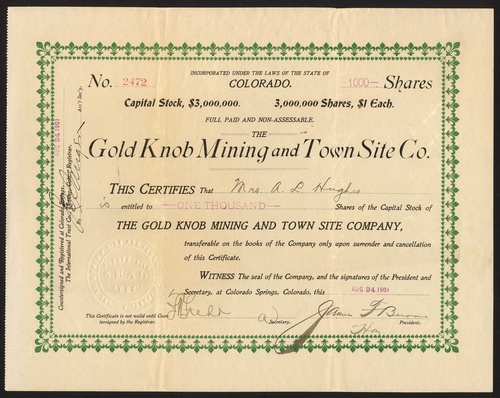 INCORPORATED UNDER THE LAWS OF THE STATE OF
No. 2472 COLORADO. 1000 Shares
Capital Stock, $3,000,000. 3,000,000 Shares, $1 Each.
FULL PAID AND NON-ASSESSABLE.
THE
Gold Knob Mining and Town Site Co.
THIS CERTIFIES That Mrs. A. L. Hughes
is entitled to ONE THOUSAND Shares of the Capital Stock of
THE GOLD KNOB MINING AND TOWN SITE COMPANY,
transferable on the books of the Company only upon surrender and cancellation
of this Certificate.
WITNESS The seal of the Company, and the signatures of the President and
Secretary, at Colorado Springs, Colorado, this AUG 24 1901
This Certificate is not valid until Countersigned by the Registrar.
Secretary. President.
Countersigned and Registered at Colorado Springs
The International Trust Co. Registrar.
AUG 24 1901
Ass't Sec'y.